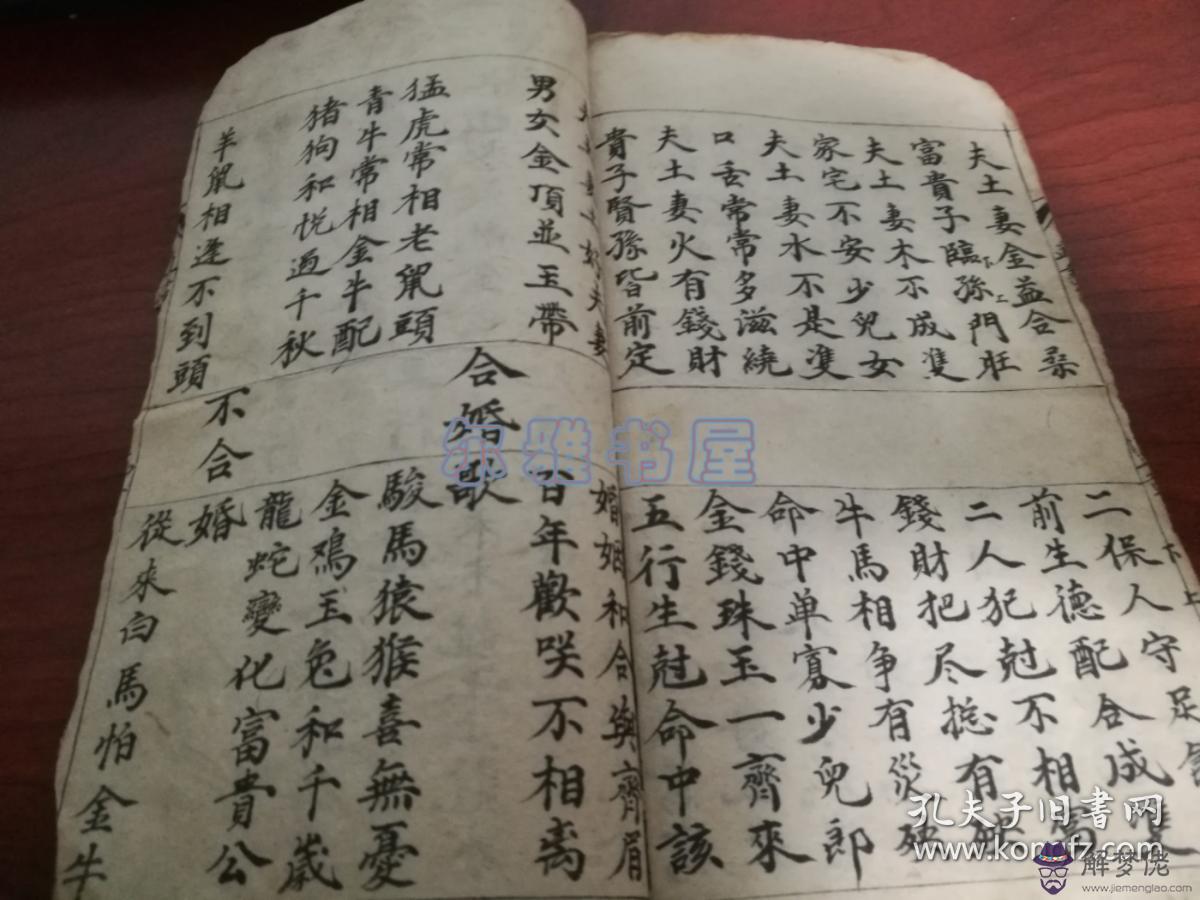 夫土妻金益合
富貴子臨孫門旺
下
上
夫土妻木不成雙
家宅不安少兒女
夫土妻水不是雙
口舌常常多滋繞
夫土妻火有錢財
貴子賢孫皆前定
下
上
二保人守足
前生德配合成雙
二人犯尅不相
錢財把尽捴有
牛馬相争有災殃
命中单寡少兒郎
金錢珠玉一齊來
五行生尅命中該
好夫妻
婚姻和合與齊眉
男女金頂並玉帶
百年歡咲不相离
合婚歌
猛虎常相老鼠頭
駿馬猿猴喜無憂
青牛常相金牛配
金鳮玉兔和千歲
猪狗和悦過千秋
龍蛇變化富貴公
不合婚
羊鼠相逢不到頭
從來白馬怕金牛
尔雅书屋
孔夫子旧书网
www.kongfz.com
解梦佬
www.jiemenglao.com